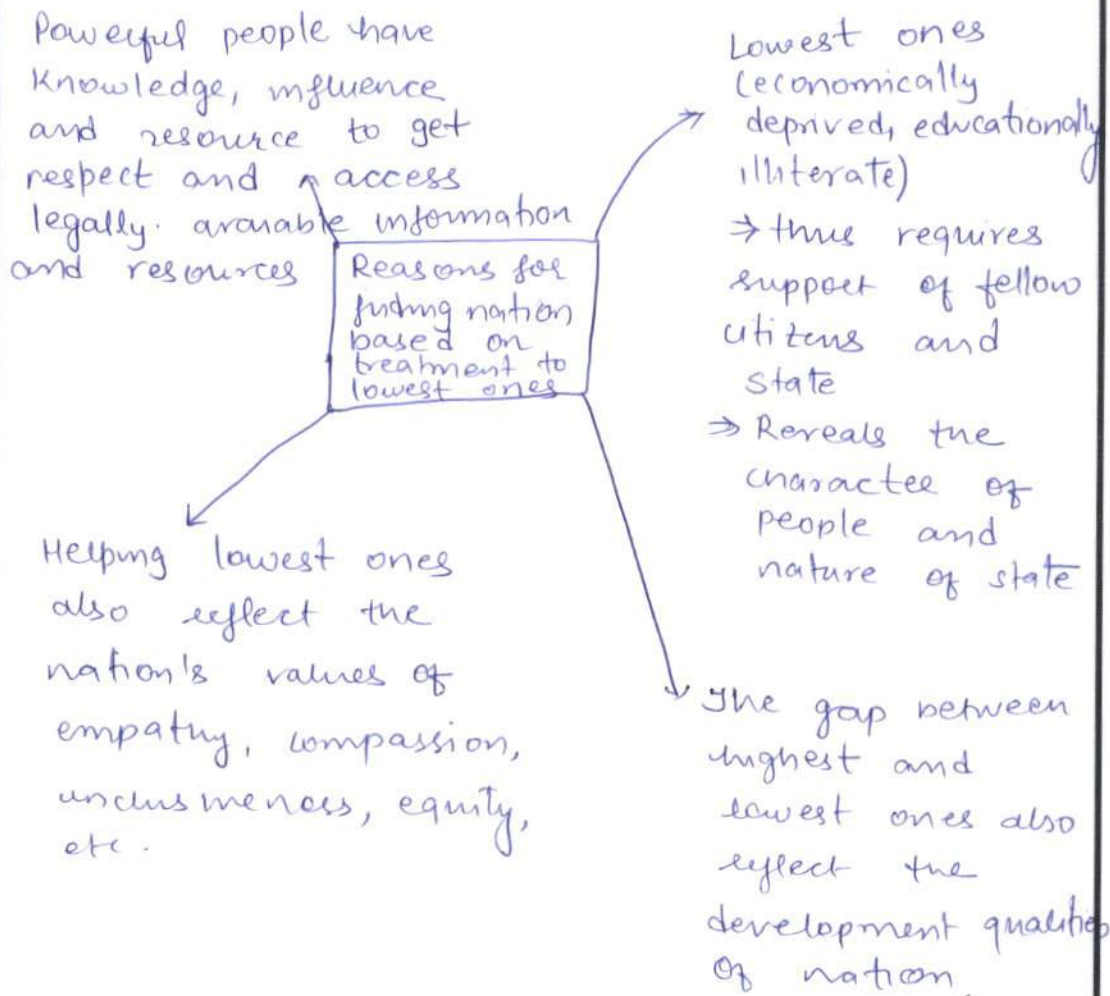 Powerful people have
Knowledge, influence
and resource to get
respect and access
legally. available information
and resources
Reasons for
judging nation
based on
treatment to
lowest ones
Lowest ones
(economically
deprived, educationally
illiterate)
⇒ thus requires
support of fellow
citizens and
state
⇒ Reveals the
character of
people and
nature of state
Helping lowest ones
also reflect the
nation's values of
empathy, compassion,
inclusiveness, equity,
etc.
The gap between
highest and
lowest ones also
reflect the
development qualities
of nation.